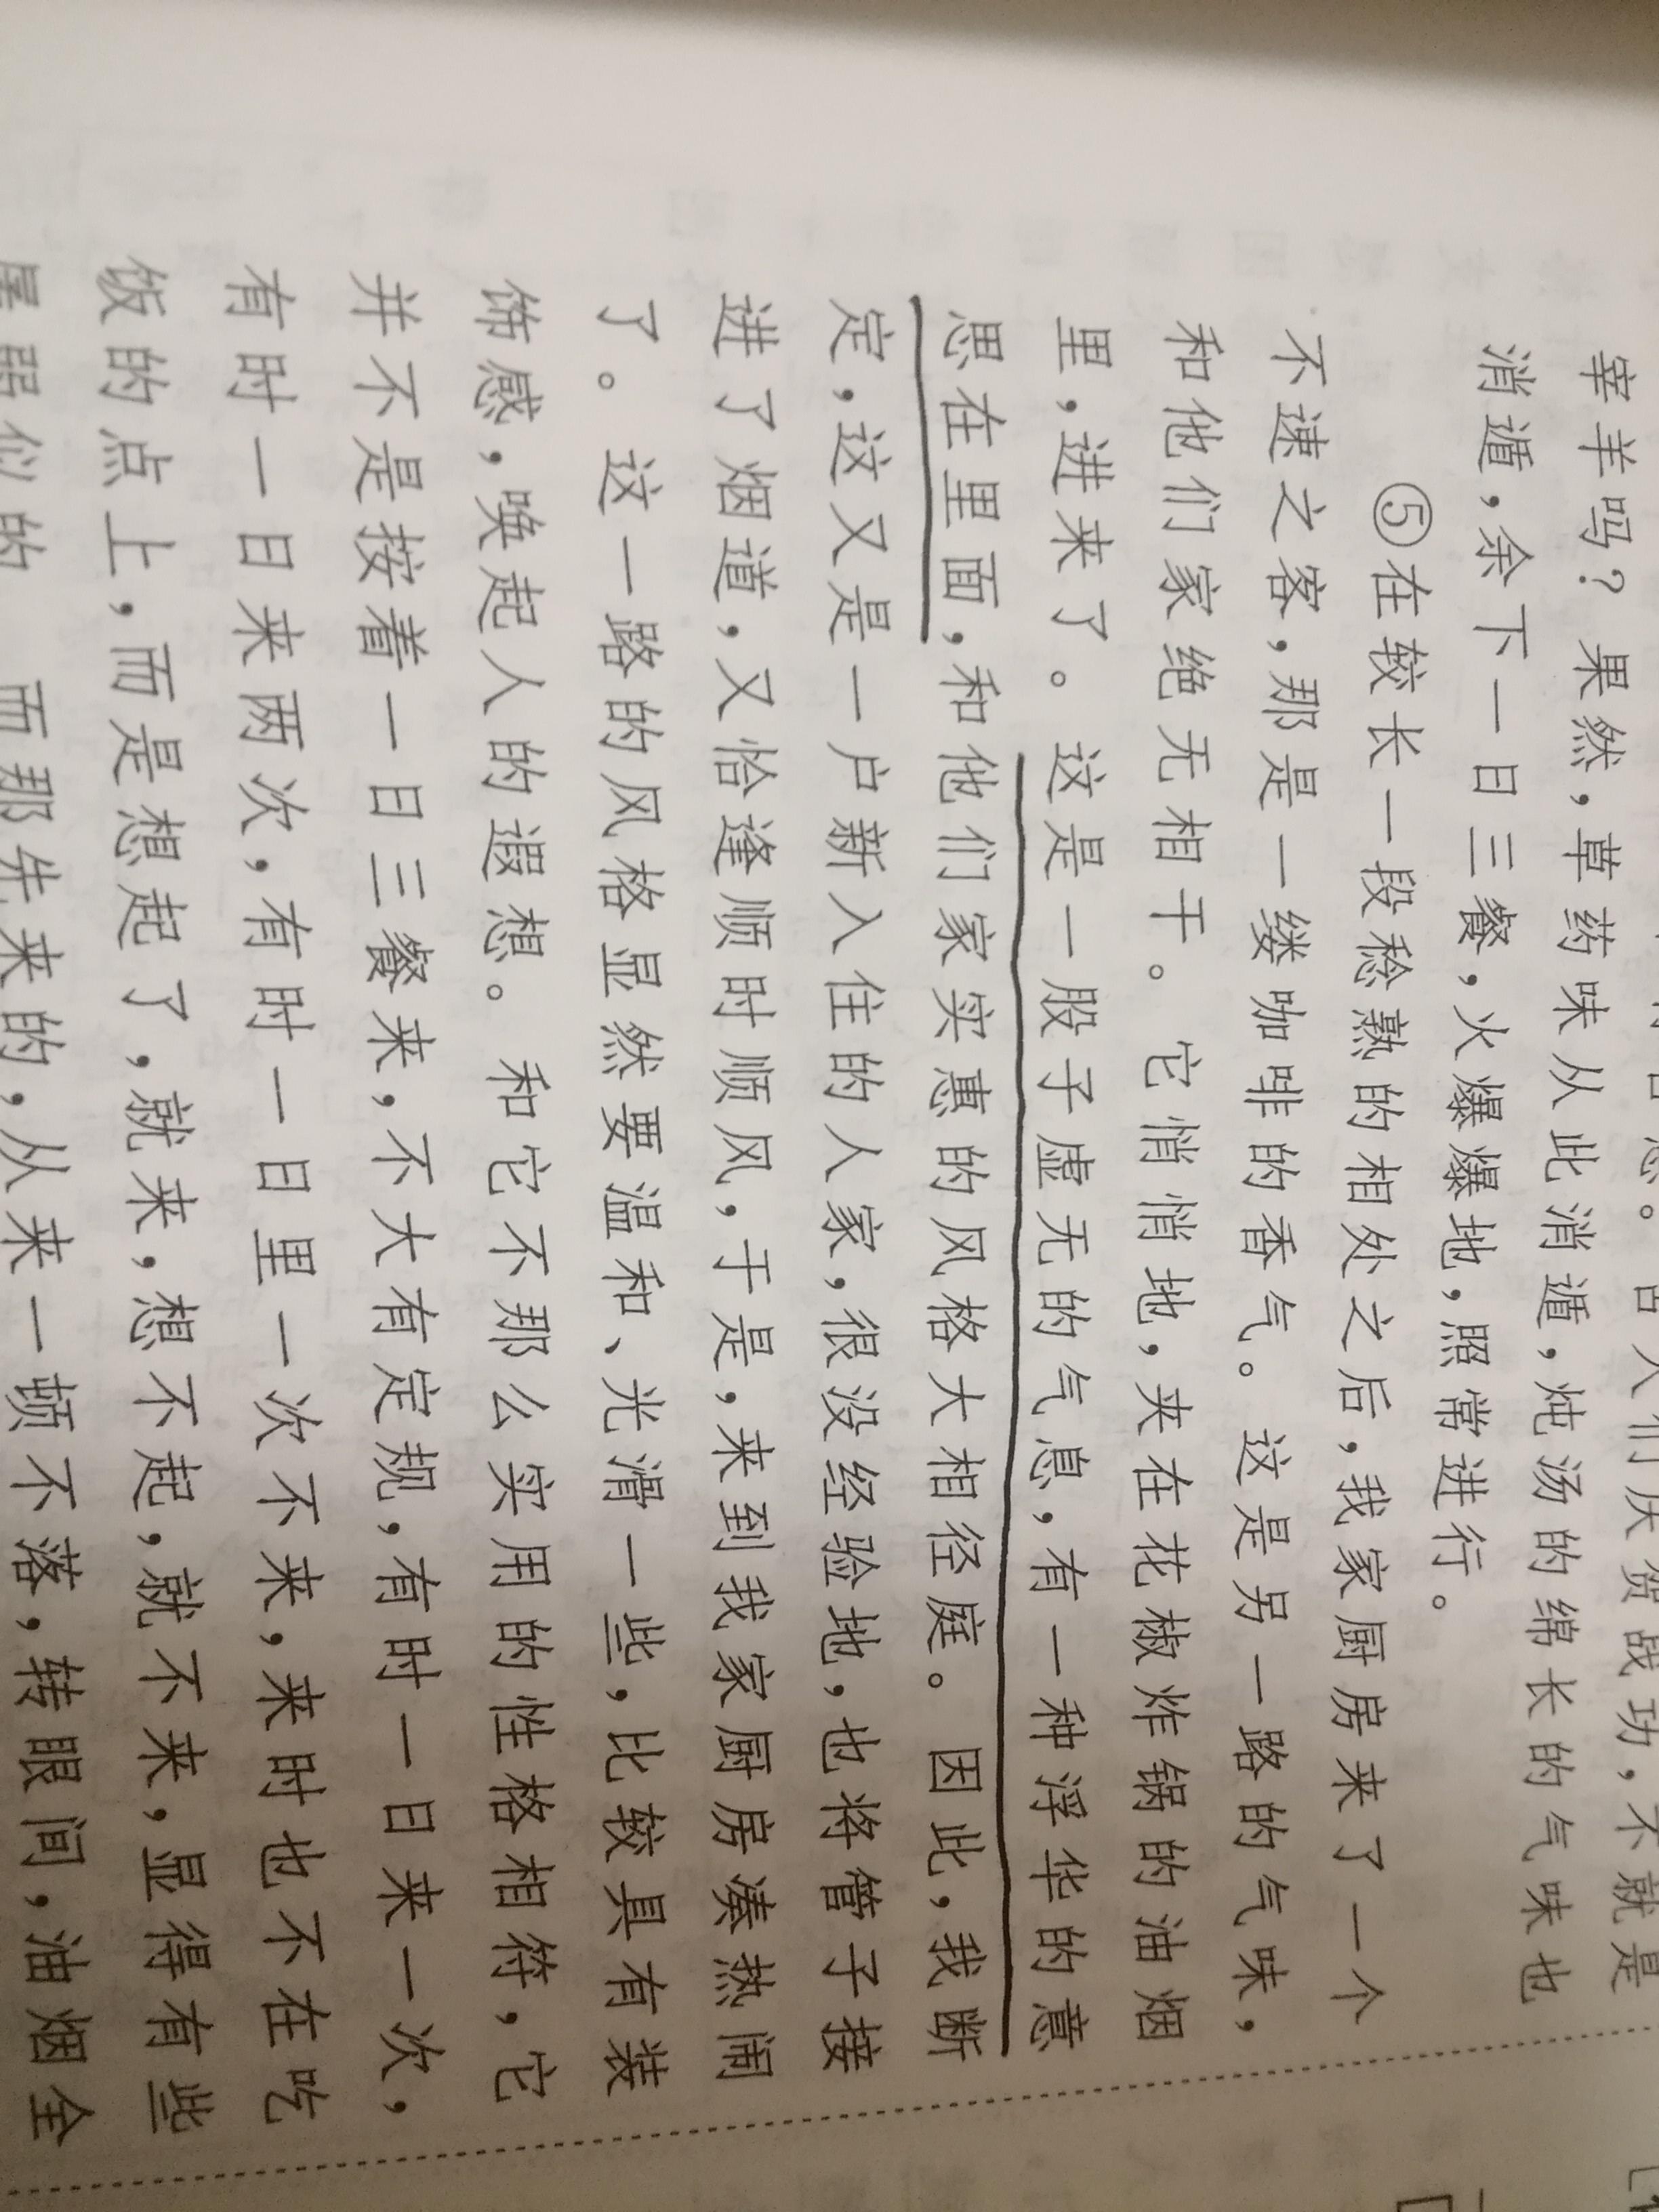 宰羊吗？果然，草药味从此消遁，炖汤的绵长的气味也
消遁，余下一日三餐，火爆爆地，照常进行。
⑤在较长一段稔熟的相处之后，我家厨房来了一个
不速之客，那是一缕咖啡的香气。这是另一路的气味，
和他们家绝无相干。它悄悄地，来在花椒炸锅的油烟
里，进来了。这是一股子虚无的气息，有一种浮华的意
思在里面，和他们家实惠的风格大相径庭。因此，我断
定，这又是一户新入住的人家，很没经验地，也将管子接
进了烟道，又恰逢顺时顺风，于是，来到我家厨房凑热闹
了。这一路的风格显然要温和、光滑一些，比较具有装
饰感，唤起人的遐想。和它不那么实用的性格相符，它
并不是按着一日三餐来，不大有定规，有时一日来一次，
有时一日来两次，有时一日里一次不来，来时也不在吃
饭的点上，而是想起了，就来，想不起，就不来，显得有些
似的 而那先来的，从来一顿不落，转眼间，油烟全